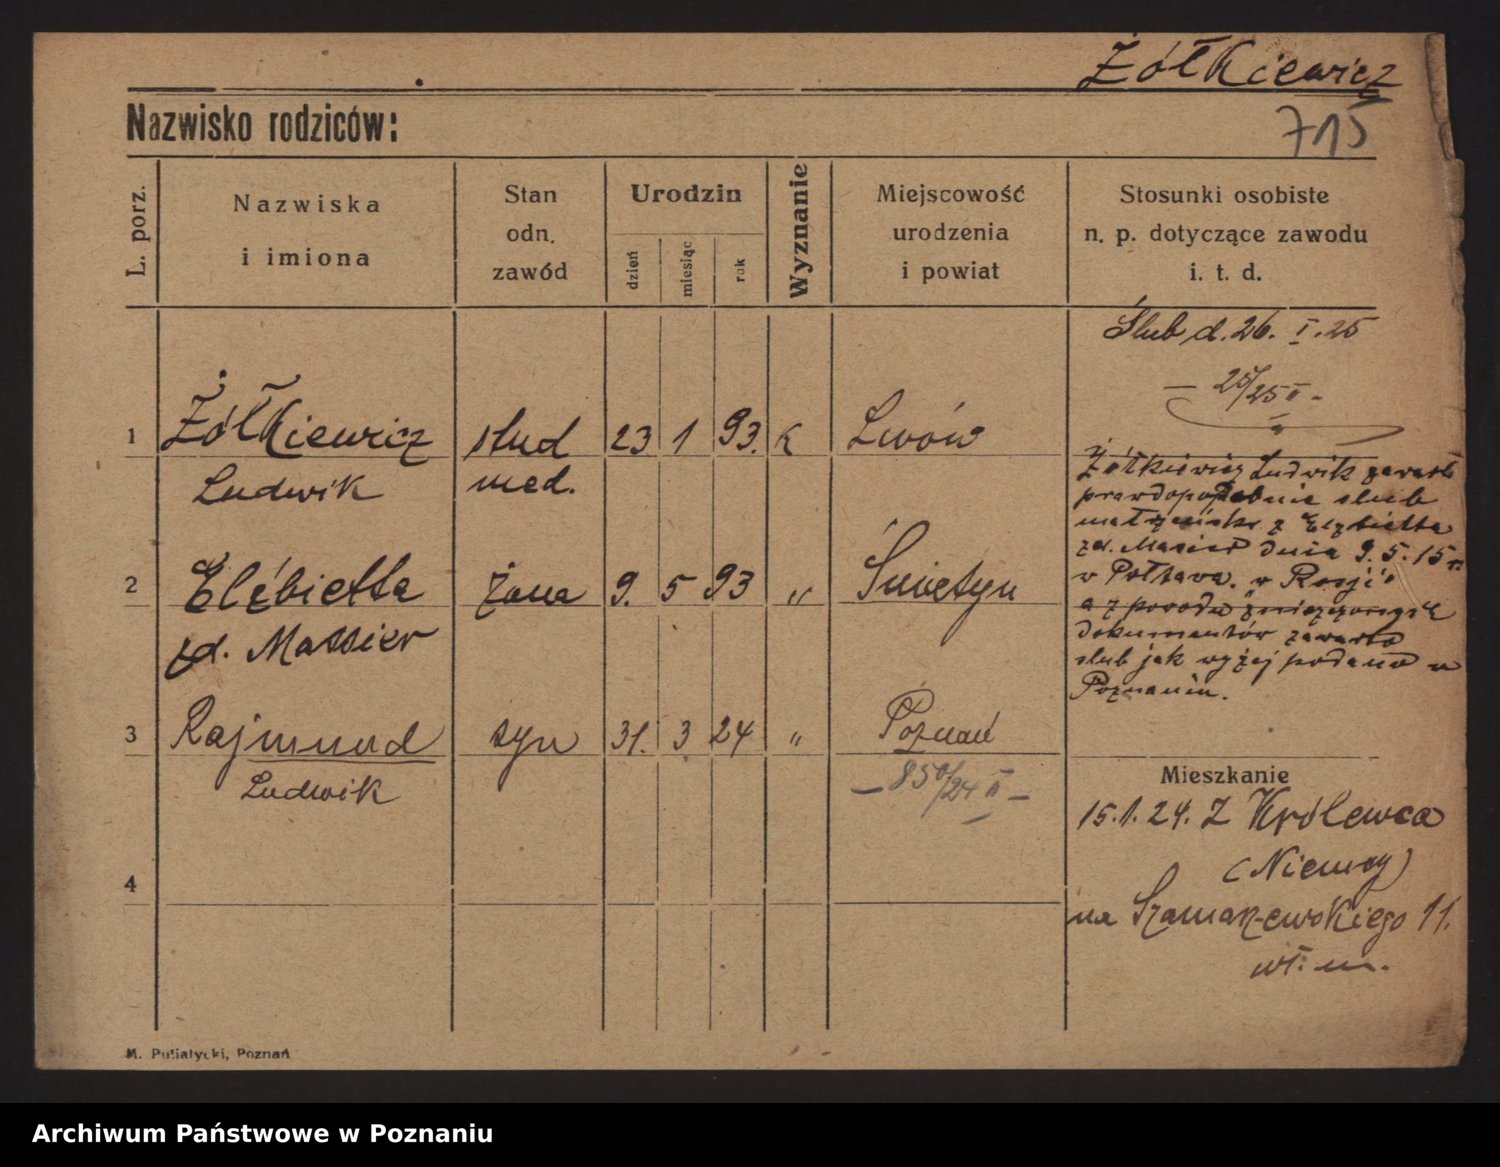 Żółkiewicz
715
Nazwisko rodziców:
L. porz.
Nazwiska
i imiona
Stan
odn.
zawód
Urodzin
dzień
miesiąc
rok
Wyznanie
Miejscowość
urodzenia
i powiat
Stosunki osobiste
n. p. dotyczące zawodu
i. t. d.
Ślub d. 26. I. 25
— 25/25 II -
1 Żółkiewicz stud 23 1 93. k Lwów
Ludwik med.
2 Elżbietta żona 9. 5 93 „ 
zd. Massier
3 Rajmund syn 31. 3 24 „ Poznań
Ludwik — 850/24 II —
4
Żółkiewicz Ludwik zawarł
prawdopopdobnie slub
małżeński z Elzbietta
zd. Masier dnia 9. 5. 15 r.
w Połtawa. w Rosji
a z porodu
dokumentów zawarto
slub jak wyżej podano w
Poznaniu.
Mieszkanie
15. 1. 24. Z Królewca
(Niemcy)
na Szamarzewskiego 11.
wł. m.
M. Putiatycki, Poznań
Archiwum Państwowe w Poznaniu